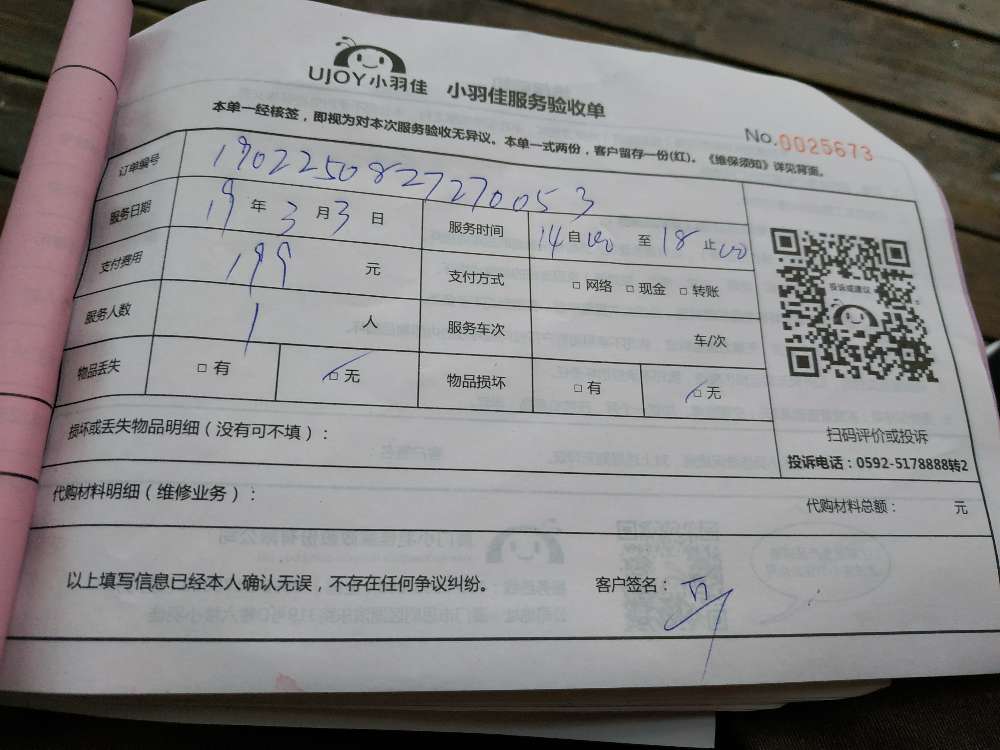 UJOY小羽佳 小羽佳服务验收单
No.0025673
本单一经核签，即视为对本次服务验收无异议。本单一式两份，客户留存一份(红)。《维保须知》详见背面。
订单编号 190225082727270053
服务日期 19 年 3 月 3 日 服务时间 14 自 00 至 18 止 00
支付费用 199 元 支付方式 □ 网络 □ 现金 □ 转账
服务人数 1 人 服务车次 车/次
物品丢失 □ 有 ☑ 无 物品损坏 □ 有 ☑ 无
投诉或建议
扫码评价或投诉
投诉电话：0592-5178888转2
损坏或丢失物品明细（没有可不填）：
代购材料明细（维修业务）： 代购材料总额： 元
以上填写信息已经本人确认无误，不存在任何争议纠纷。 客户签名：